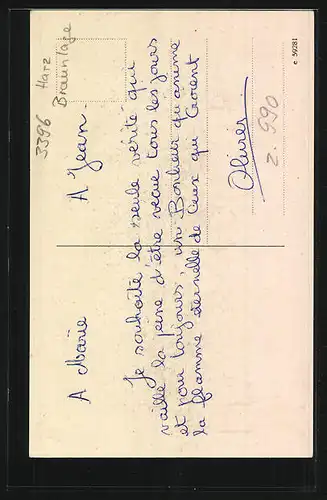 3396 Harz
Braunlage
A Marie
A Jean.
Je souhaite la seule vérité qui
vaille la peine d'être vécue tous les jours
et pour toujours, un Bonheur qu'anime
la flamme éternelle de Ceux qui Croient
Olivier
2.990
c 59281